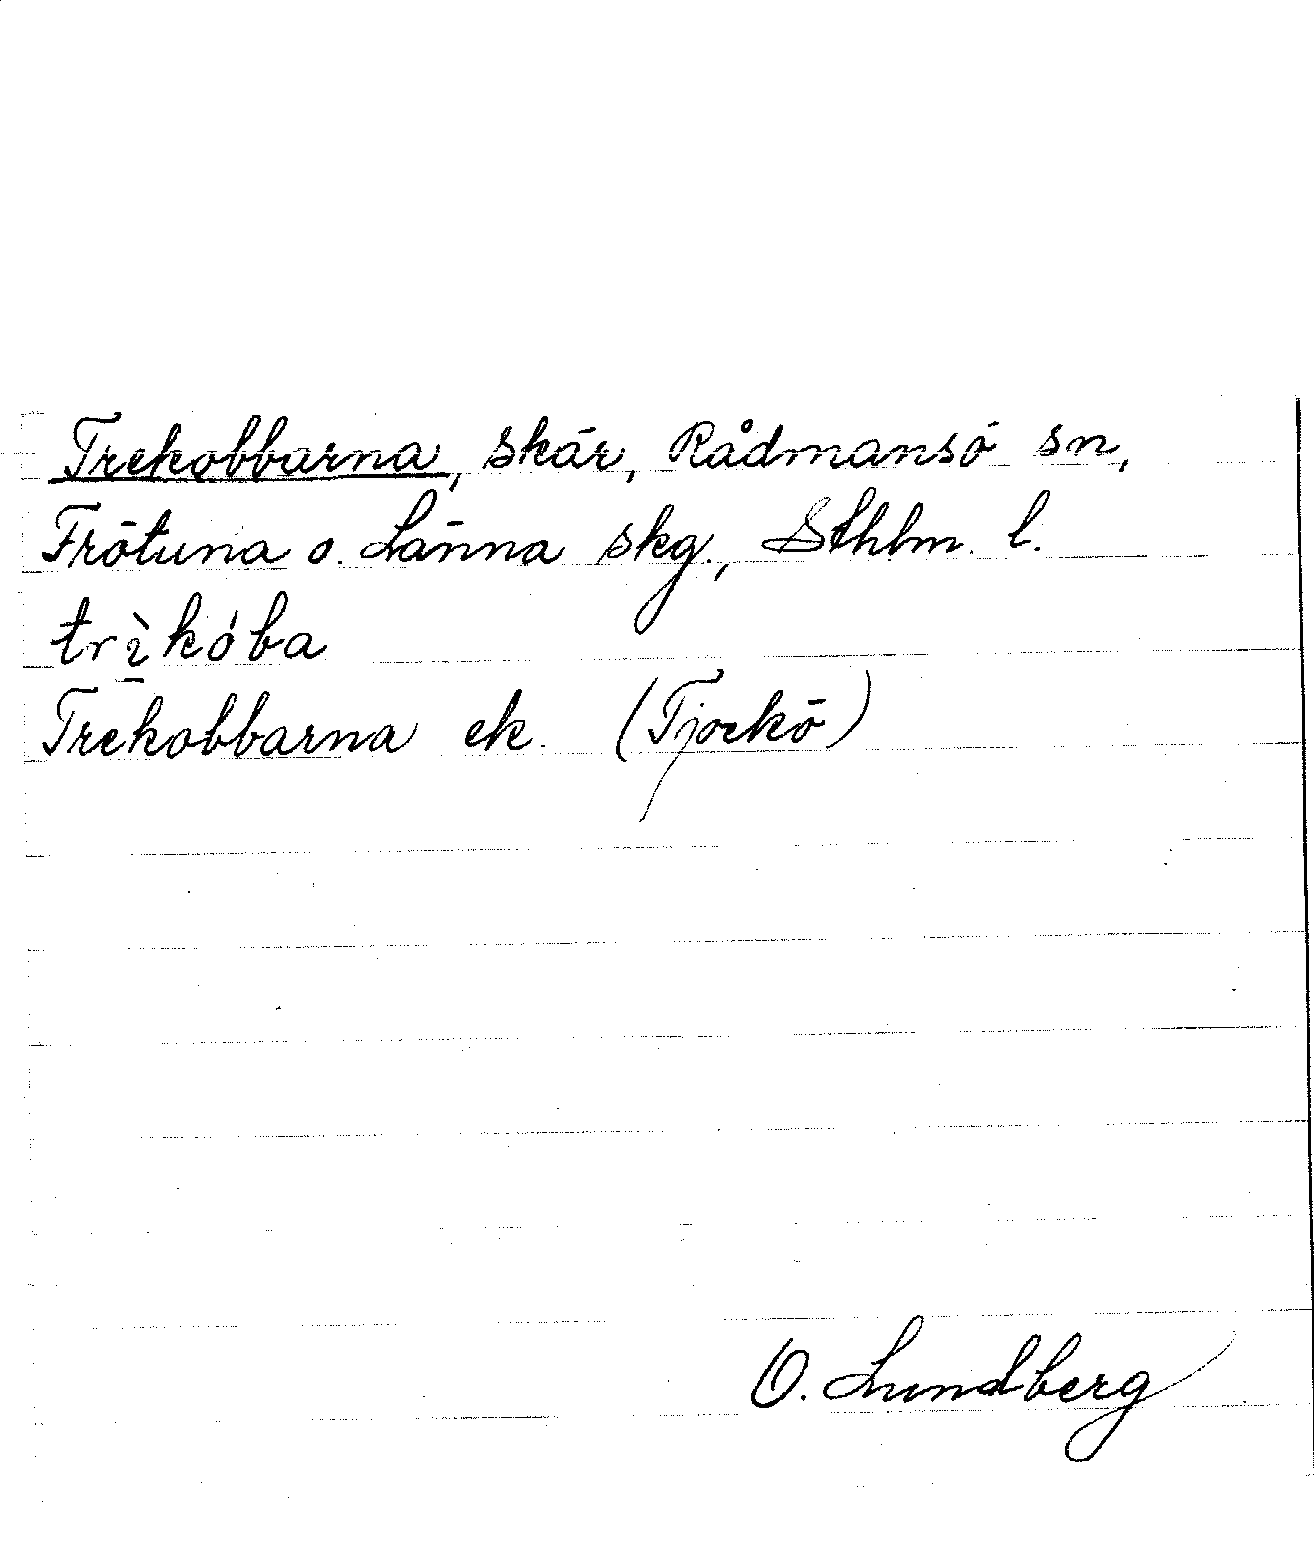 Trekobbarna, skär, Rådmansö sn,
Frötuna o. Länna skg., Sthlm. l.
trì̱kóba
Trekobbarna ek. (Tjockö)
O. Lundberg